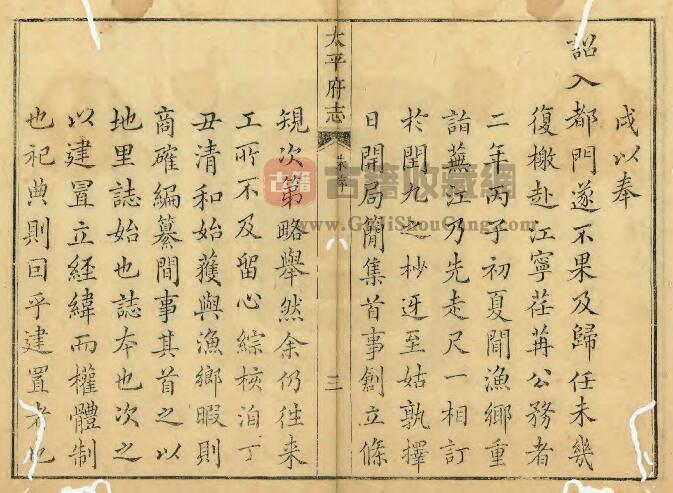 成以奉
詔入都門遂不果及歸任未幾
復檄赴江寧荏苒公務者
二年丙子初夏聞漁鄉重
詣蕪江乃先走尺一相訂
於閏九之杪迓至姑孰擇
日開局簡集首事創立條
太平府志
朱序
三
規次第略舉然余仍往来
工所不及留心綜核洎丁
丑清和始獲與漁鄉暇則
商確編纂間事其首之以
地里誌始也誌本也次之
以建置立経緯而權體制
也祀典則回乎建置者也
古籍
古籍收藏網
www.GuJiShouCang.com